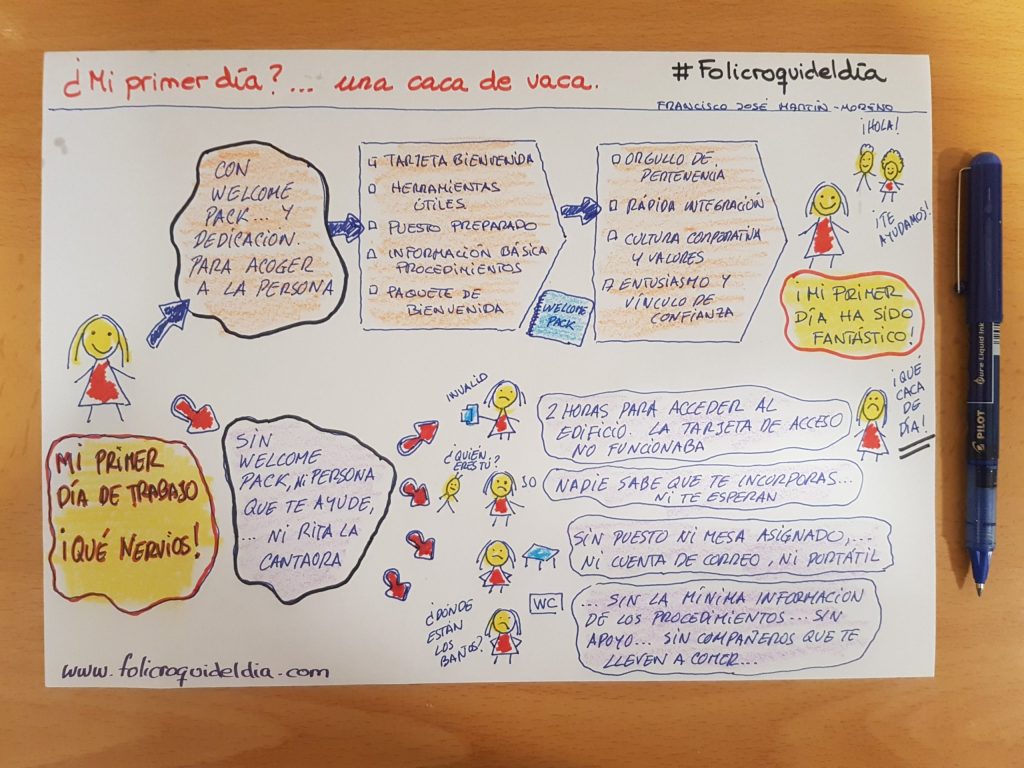 ¿Mi primer día?... una caca de vaca.
#Folicroquideldía
FRANCISCO JOSÉ MARTÍN-MORENO
¡HOLA!
¡TE
AYUDAMOS!
CON
WELCOME
PACK... Y
DEDICACIÓN.
PARA ACOGER
A LA PERSONA
TARJETA BIENVENIDA
HERRAMIENTAS
ÚTILES.
PUESTO PREPARADO
INFORMACIÓN BÁSICA
PROCEDIMIENTOS
PAQUETE DE
BIENVENIDA
WELCOME
PACK
ORGULLO DE
PERTENENCIA
RÁPIDA INTEGRACIÓN
CULTURA CORPORATIVA
Y VALORES
ENTUSIASMO Y
VÍNCULO DE
CONFIANZA
¡MI PRIMER
DÍA HA SIDO
FANTÁSTICO!
MI PRIMER
DÍA DE TRABAJO
¡QUÉ NERVIOS!
SIN
WELCOME
PACK, NI PERSONA
QUE TE AYUDE,
... NI RITA LA
CANTAORA
INVALID
2 HORAS PARA ACCEDER AL
EDIFICIO. LA TARJETA DE ACCESO
NO FUNCIONABA
¡QUÉ
CACA
DE
DÍA!
¿QUIEN
ERES TÚ?
YO
NADIE SABE QUE TE INCORPORAS...
NI TE ESPERAN
SIN PUESTO NI MESA ASIGNADO,...
NI CUENTA DE CORREO, NI PORTÁTIL
¿DÓNDE
ESTÁN
LOS
BAÑOS?
WC
... SIN LA MÍNIMA INFORMACIÓN
DE LOS PROCEDIMIENTOS... SIN
APOYO... SIN COMPAÑEROS QUE TE
LLEVEN A COMER...
www.folicroquideldia.com
PILOT
Pure Liquid Ink